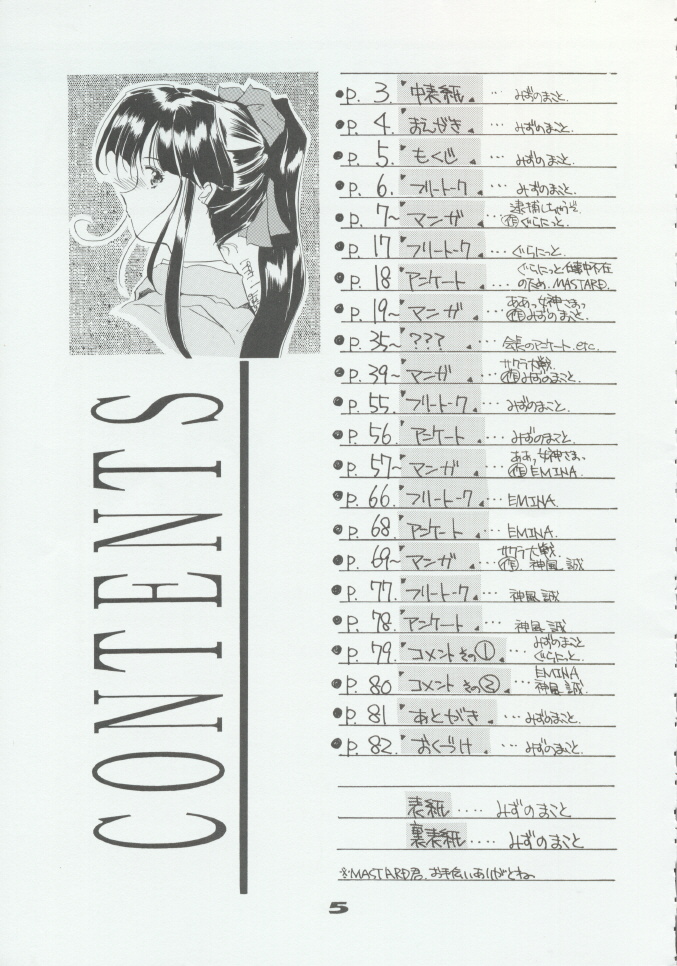 CONTENTS
p. 3. 中表紙 … みずのまこと.
p. 4. まえがき … みずのまこと.
p. 5. もくじ … みずのまこと.
p. 6. フリートーク … みずのまこと.
p. 7~ マンガ … 逮捕しちゃうぞ.
作 ぐらにっと.
p. 17 フリートーク … ぐらにっと.
p. 18 アンケート … ぐらにっと仕事中不在
のため. MASTARD.
p. 19~ マンガ … ああっ女神さまっ
作 みずのまこと.
p. 35~ ??? … 会長のアンケート. etc.
p. 39~ マンガ サクラ大戦.
作 みずのまこと.
p. 55. フリートーク … みずのまこと.
p. 56. アンケート … みずのまこと.
p. 57~ マンガ … ああっ女神さまっ
作 EMINA.
p. 66. フリートーク … EMINA.
p. 68. アンケート … EMINA.
p. 69~ マンガ サクラ大戦.
作 神風 誠
p. 77. フリートーク … 神風 誠
p. 78. アンケート … 神風 誠
p. 79. コメント その① … みずのまこと
ぐらにっと.
p. 80 コメント その② … EMINA.
神風 誠.
p. 81 あとがき … みずのまこと.
p. 82. おくづけ … みずのまこと.
表紙 ‥‥ みずのまこと
裏表紙 ‥‥ みずのまこと
※MASTARD君、お手伝いありがとね。
5